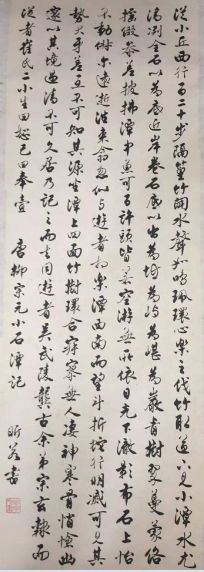 從小丘西行百二十步隔篁竹聞水聲如鳴珮環心樂之伐竹取道下見小潭水尤
清冽全石以為底近岸卷石底以出為坻為嶼為嵁為巖青樹翠蔓蒙絡
搖綴參差披拂潭中魚可百許頭皆若空游無所依日光下澈影布石上怡
不動俶尔遠逝往來翕忽似与遊者相樂潭西南而望斗折蛇行明滅可見其
勢犬牙差互不可知其源坐潭上四面竹樹環合寂寥無人凄神寒骨悄愴幽
邃以其境過清不可久居乃記之而去同遊者吳武陵龔古余弟宗玄隸而
從者崔氏二小生曰恕己曰奉壹 唐柳宗元小石潭記 書